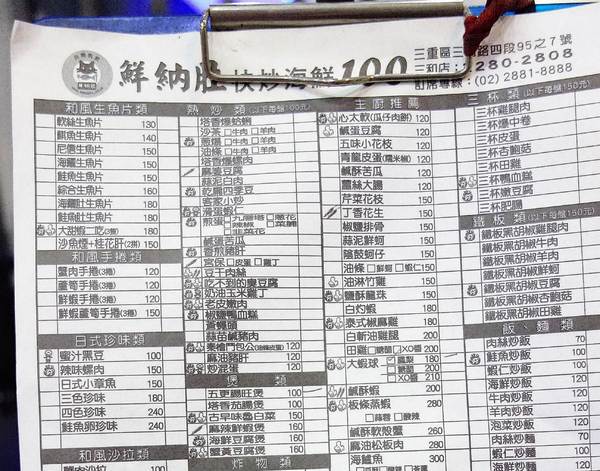 鮮納肚 快炒海鮮100
三重區三 路四段95之7號
三和店 280-2808
訂席專線:(02) 2881-8888
和風生魚片類
軟絲生魚片 130
旗魚生魚片 140
尼信生魚片 150
海鱺生魚片 150
鮭魚生魚片 150
綜合生魚片 160
海鱺肚生魚片 210
鮭魚肚生魚片 210
大甜蝦二吃(3種) 150
沙魚煙+桂花肝(2拼) 150
和風手捲類
蟹肉手捲(3捲) 120
蘆筍手捲(3捲) 120
鮮蝦手捲(3捲) 120
鮮蝦蘆筍手捲(3捲) 150
日式珍味類
蜜汁黑豆 100
辣味螺肉 150
日式小章魚 150
三色珍味 180
四色珍味 240
鮭魚卵珍味 240
和風沙拉類
熱炒類(以下每盤100元)
塔香爆蛤蜊
沙茶 □牛肉 □羊肉
蔥爆 □牛肉 □羊肉
油條 □牛肉 □羊肉
塔香爆螺肉
麻婆豆腐
蒜泥白肉
乾扁四季豆
客家小炒
滑蛋蝦仁
煎蛋 □九層塔 □蔥花 □辣椒 □蘿蔔 □韭菜
鹹蛋苦瓜
香煎豬肝
宮保 □皮蛋 □雞丁
豆干肉絲
吃不到的臭豆腐
奶油玉米雞丁
老皮嫩肉
椒鹽鴨血糕
蒼蠅頭
蒜苗鹹豬肉
秦檜門包公(油條皮蛋) 120
麻油豬肝 120
炒混蛋 120
煲類
五更腸旺煲 100
塔香茄腸煲 100
古早味魯白菜 150
麻辣鮮蝦煲 150
海鮮豆腐煲 150
蟹黃豆腐煲 150
炸物類
主廚推薦
心太軟(瓜仔肉餅) 120
鹹蛋豆腐 120
五味小花枝 120
青龍皮蛋(糯米椒) 120
鹹酥苦瓜 120
薑絲大腸 120
芹菜花枝 150
丁香花生 150
椒鹽排骨 150
蒜泥鮮蚵 150
蔭鼓蚵仔 150
油條 □鮮蚵 □蝦仁 150
油淋竹雞 150
鹽酥龍珠 150
白灼蝦 180
泰式椒麻雞 180
白斬油雞 180
田雞
大蝦球 □鳳梨 180 □糖醋 200 □XO醬 210
鹹酥蝦 200
板條蒸蝦 280
□蒜蓉 □酸辣
鹹酥軟殼蟹 260
麻油松板肉 280
海鱸魚 300
三杯類(以下每盤150元)
三杯雞腿肉
三杯中卷
三杯皮蛋
三杯杏鮑菇
三杯田雞
三杯鴨血糕
三杯嫩豆腐
三杯肥腸
鐵板類(以下每盤150元)
鐵板黑胡椒雞腿肉
鐵板黑胡椒牛肉
鐵板黑胡椒羊肉
鐵板黑胡椒鮮蚵
鐵板黑胡椒豆腐
鐵板黑胡椒杏鮑菇
鐵板黑胡椒田雞
飯、麵類
肉絲炒飯 70
鮭魚炒飯 100
蝦仁炒飯 100
海鮮炒飯 100
牛肉炒飯 100
羊肉炒飯 100
泡菜炒飯 100
肉絲炒麵 100